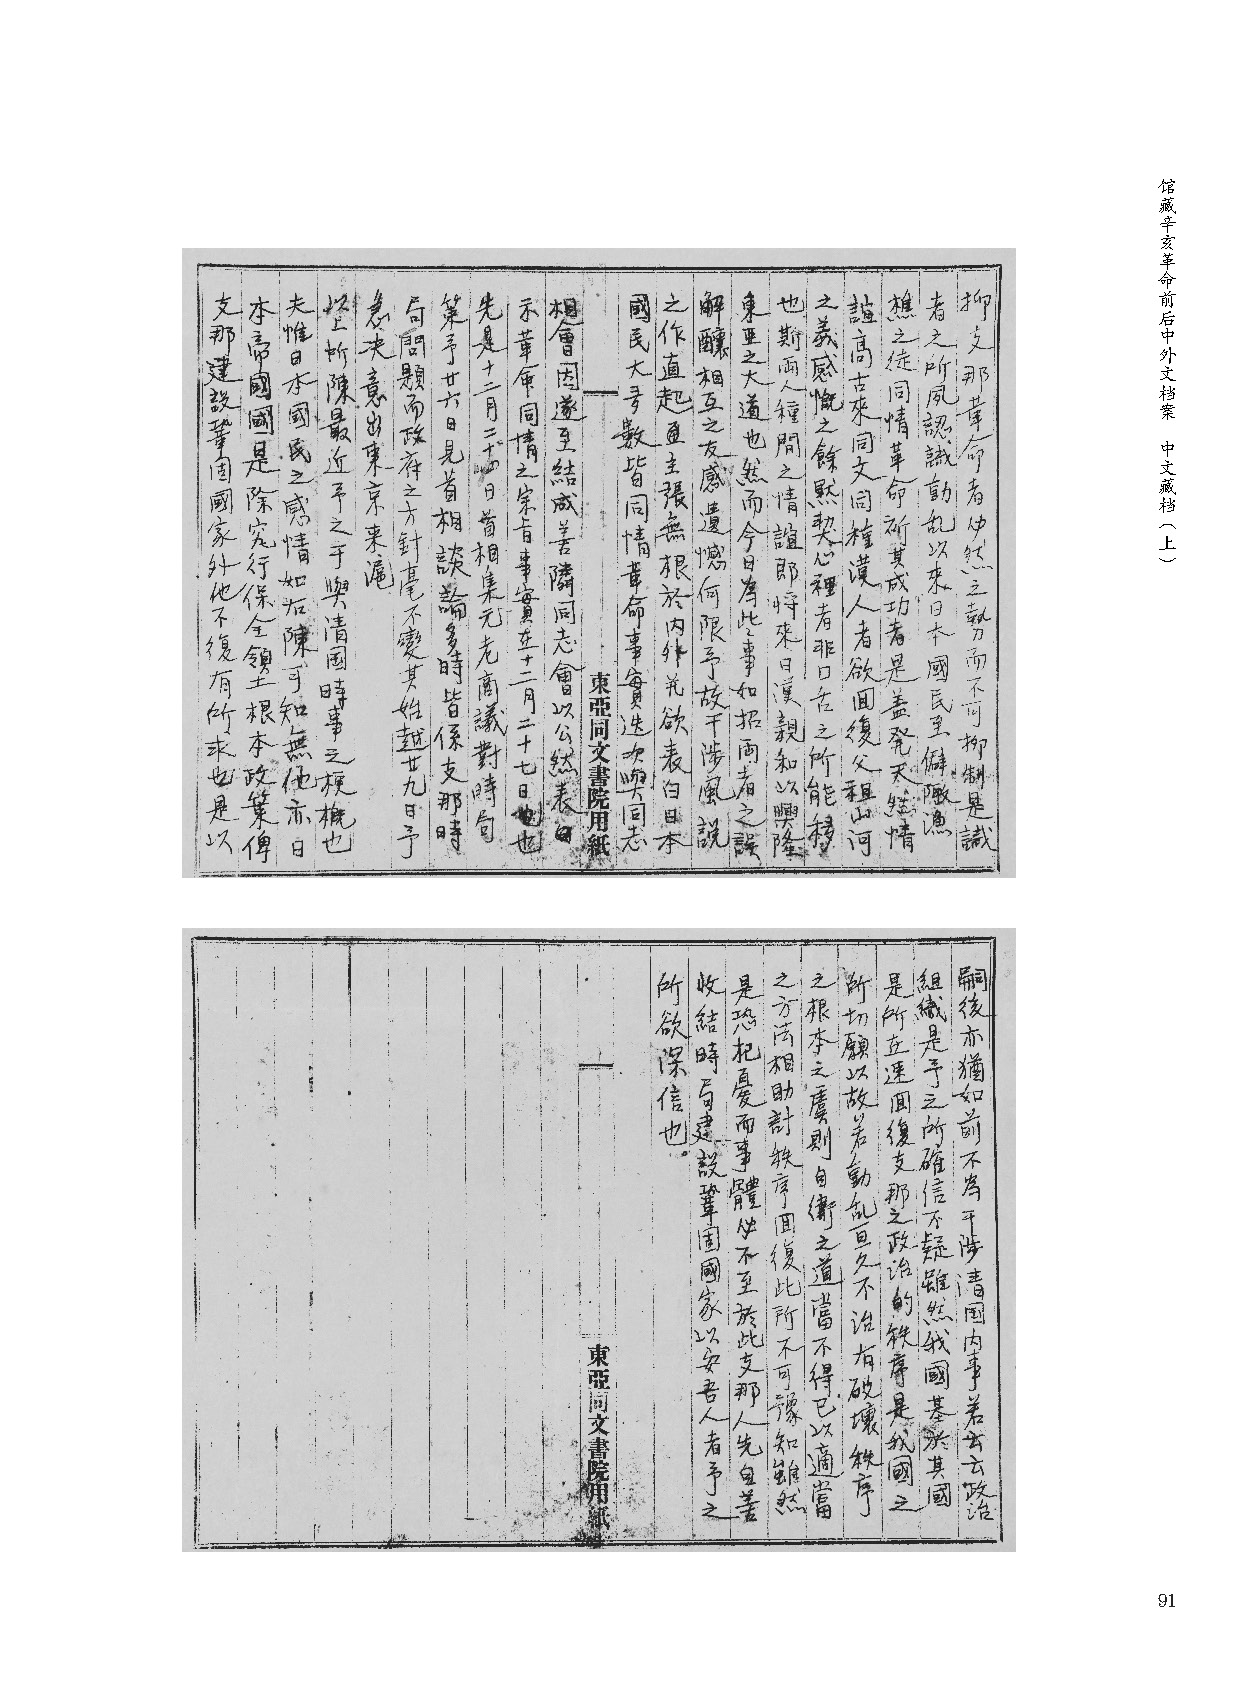 馆藏辛亥革命前后中外文档案 中文藏档（上）
抑支那革命者必然之勢而不可抑制是識
者之所夙認識動乱以來日本國民至僻陬漁
樵之徒同情革命祈其成功者是蓋発天然情
誼高古來同文同種漢人者欲回復父祖山河
之義感慨之餘黙契心裡者非口舌之所能移
也斯両人種間之情誼即将來日漢親和以興隆
東亜之大道也然而今日為此事如招両者之誤
解釀相互之友感遺憾何限予故干渉風説
之作直起直主張無根於内外並欲表白日本
國民大多數皆同情革命事實迭次與同志
東亞同文書院用紙
相會因遂至結成善隣同志會以公然表白
示革命同情之宗旨事實在十二月二十七日也
先是十二月二十四日首相集元老商議對時局
策予廿六日見首相談論多時皆係支那時
局問題而政府之方針毫不變其始越廿九日予
急决意出東京来滬
以上所陳最近予之于與清国時事之梗概也
夫惟日本國民之感情如右陳可知無他亦日
本帝國國是除究行保全領土根本政策俾
支那建設鞏固國家外他不復有所求也是以
嗣後亦猶如前不為干渉清国内事若云云政治
組織是予之所確信不疑雖然我國基於其國
是所在速回復支那之政治的秩序是我國之
所切願以故若動乱亘久不治有破壊秩序
之根本之虞則自衛之道當不得已以適當
之方法相助計秩序回復此所不可豫知雖然
是恐杞憂而事體必不至於此支那人先自善
收結時局建設鞏固國家以安吾人者予之
所欲深信也
東亞同文書院用紙
91